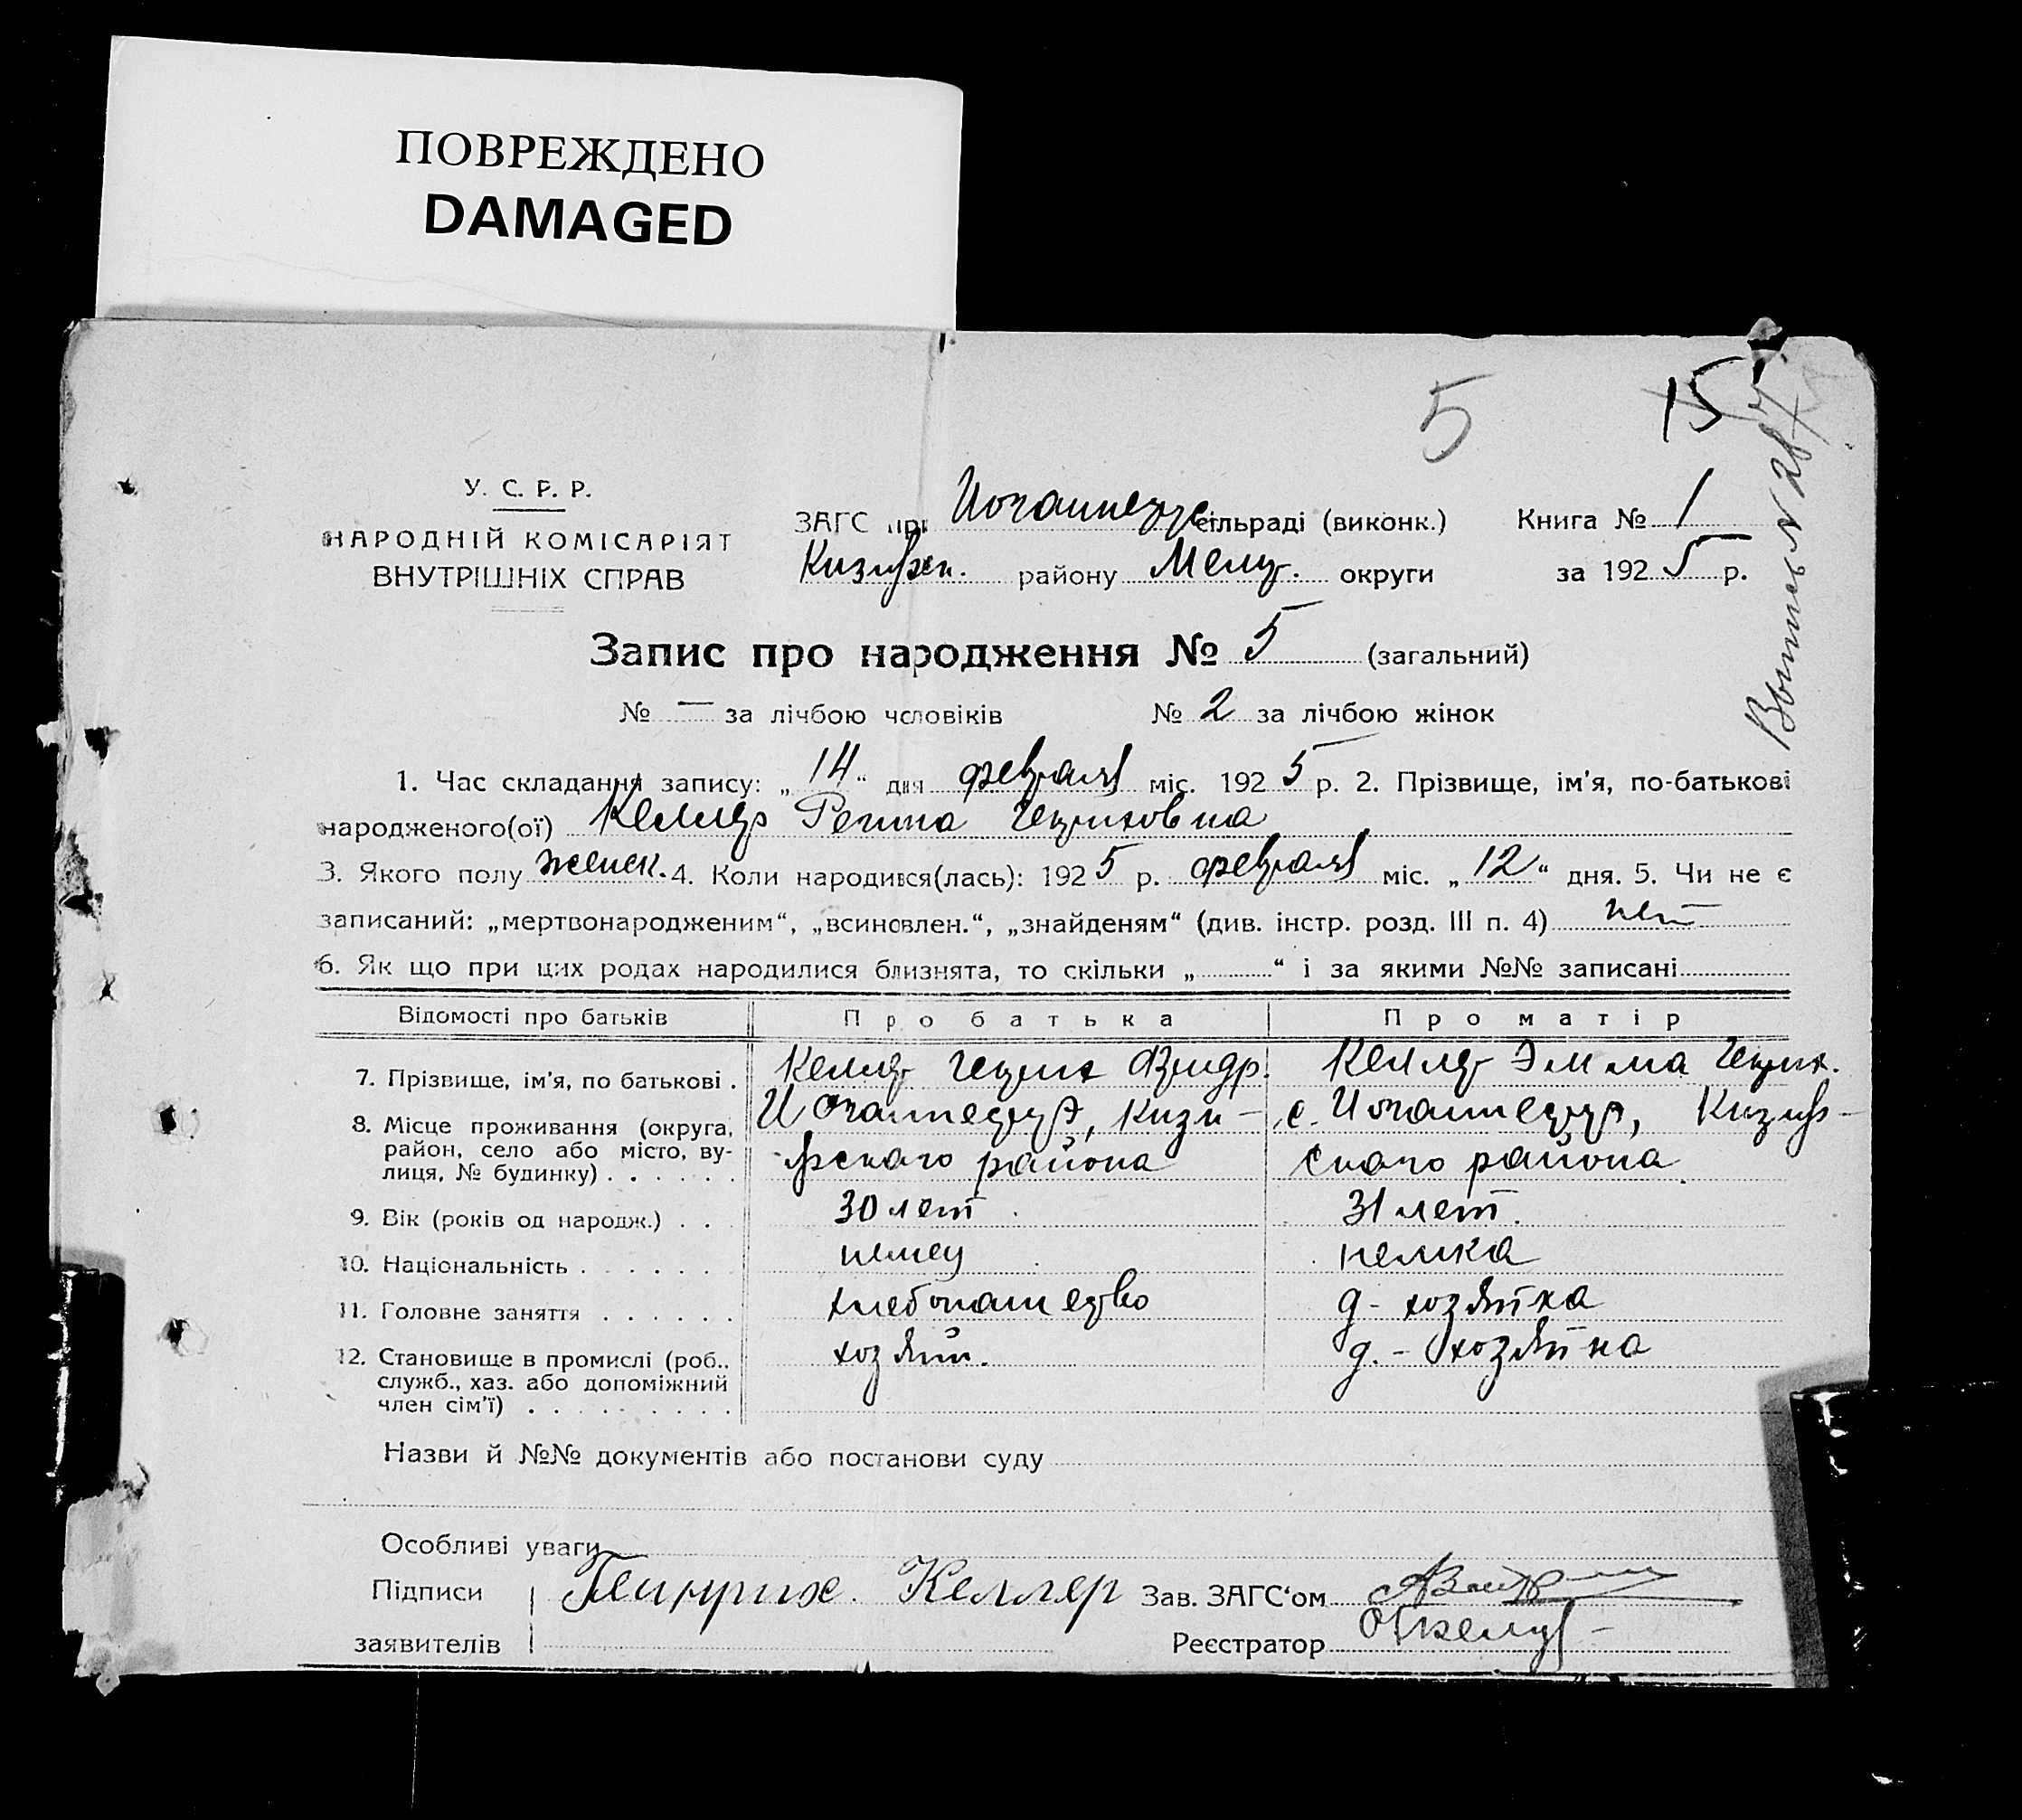 ПОВРЕЖДЕНО
DAMAGED
5
15
У. С. Р. Р.
НАРОДНІЙ КОМІСАРІЯТ
ВНУТРІШНІХ СПРАВ
ЗАГС при сільраді (виконк.) Книга № 1
району Мелит. округи за 1925 р.
Запис про народження № 5 (загальний)
№ — за лічбою чоловіків № 2 за лічбою жінок
1. Час складання запису: „14“ дня февраля міс. 1925 р. 2. Прізвище, ім'я, по-батькові
народженого(ої) Келлер Регина Генриховна
3. Якого полу женск. 4. Коли народився(лась): 1925 р. февраля міс. „12“ дня. 5. Чи не є
записаний: „мертвонародженим“, „всиновлен.“, „знайденям“ (див. інстр. розд. III п. 4) нет
6. Як що при цих родах народилися близнята, то скільки „ “ і за якими №№ записані
Відомості про батьків Про батька Про матір
7. Прізвище, ім'я, по батькові . Келлер Генрих Келлер Эмма Генрих.
8. Місце проживання (округа,
район, село або місто, ву-
лиця, № будинку) . . . . . рского района ского района
9. Вік (років од народж.) . . 30 лет 31 лет.
10. Національність . . . . . . немец немка
11. Головне заняття . . . . . . хлебопашество д-хозяйка
12. Становище в промислі (роб.,
служб., хаз. або допоміжний
член сім'ї) . . . . . . . . . хозяин. д.-хозяйка
Назви й №№ документів або постанови суду
Особливі уваги
Підписи Генрих Келлер Зав. ЗАГС'ом
заявителів Реєстратор